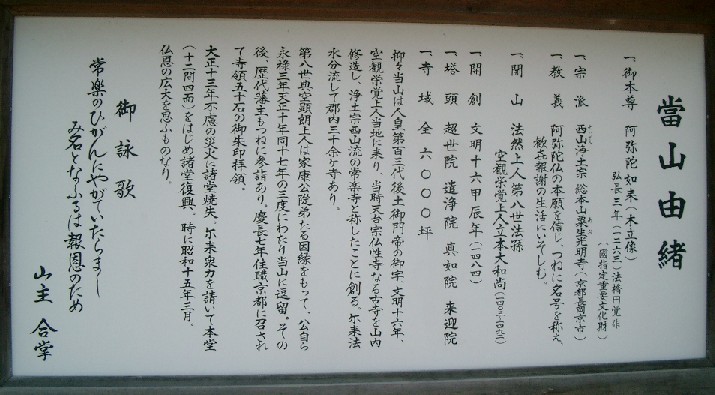 當山由緒
一、御本尊 阿弥陀如来(木立像)
弘長三年(一二六三)法橋円覚作
(国指定重要文化財)
一、宗派 西山浄土宗 総本山粟生光明寺(京都長岡京市)
一、教義 阿弥陀仏の本願を信じ、つねに名号を称え、
報恩報謝の生活にいそしむ。
一、開山 法然上人第八世法孫
空観栄覚上人立本大和尚
一、開創 文明十六甲辰年(一四八四)
一、塔頭 超世院 遣浄院 真如院 来迎院
一、寺域 全 六〇〇〇坪
抑々当山は人皇第百三代後土御門帝の御宇、文明十六年、
空観栄覚上人当地に来り、当時天台宗仏性寺なる古寺を山内
修造し、浄土宗西山流の常楽寺と称したことに創る。尓来法
水分流して郡内三十余ヶ寺あり。
第八世典空顕朗上人は家康公従弟たる因縁をもって、公自ら
永禄三年天正十年同十七年の三度にわたり当山に逗留。その
後、歴代藩主もつねに参詣あり。慶長七年住職京都に召され
て寺領五十石の御朱印拝領。
大正十三年不慮の災火に諸堂焼失、尓来衆力を請いて本堂
(十二間四面)をはじめ諸堂復興、時に昭和十五年三月。
仏恩の広大を思ふものなり。
御詠歌
常楽のひがんにやがていたらまし
み名をとなふるは報恩のため
山主 合掌